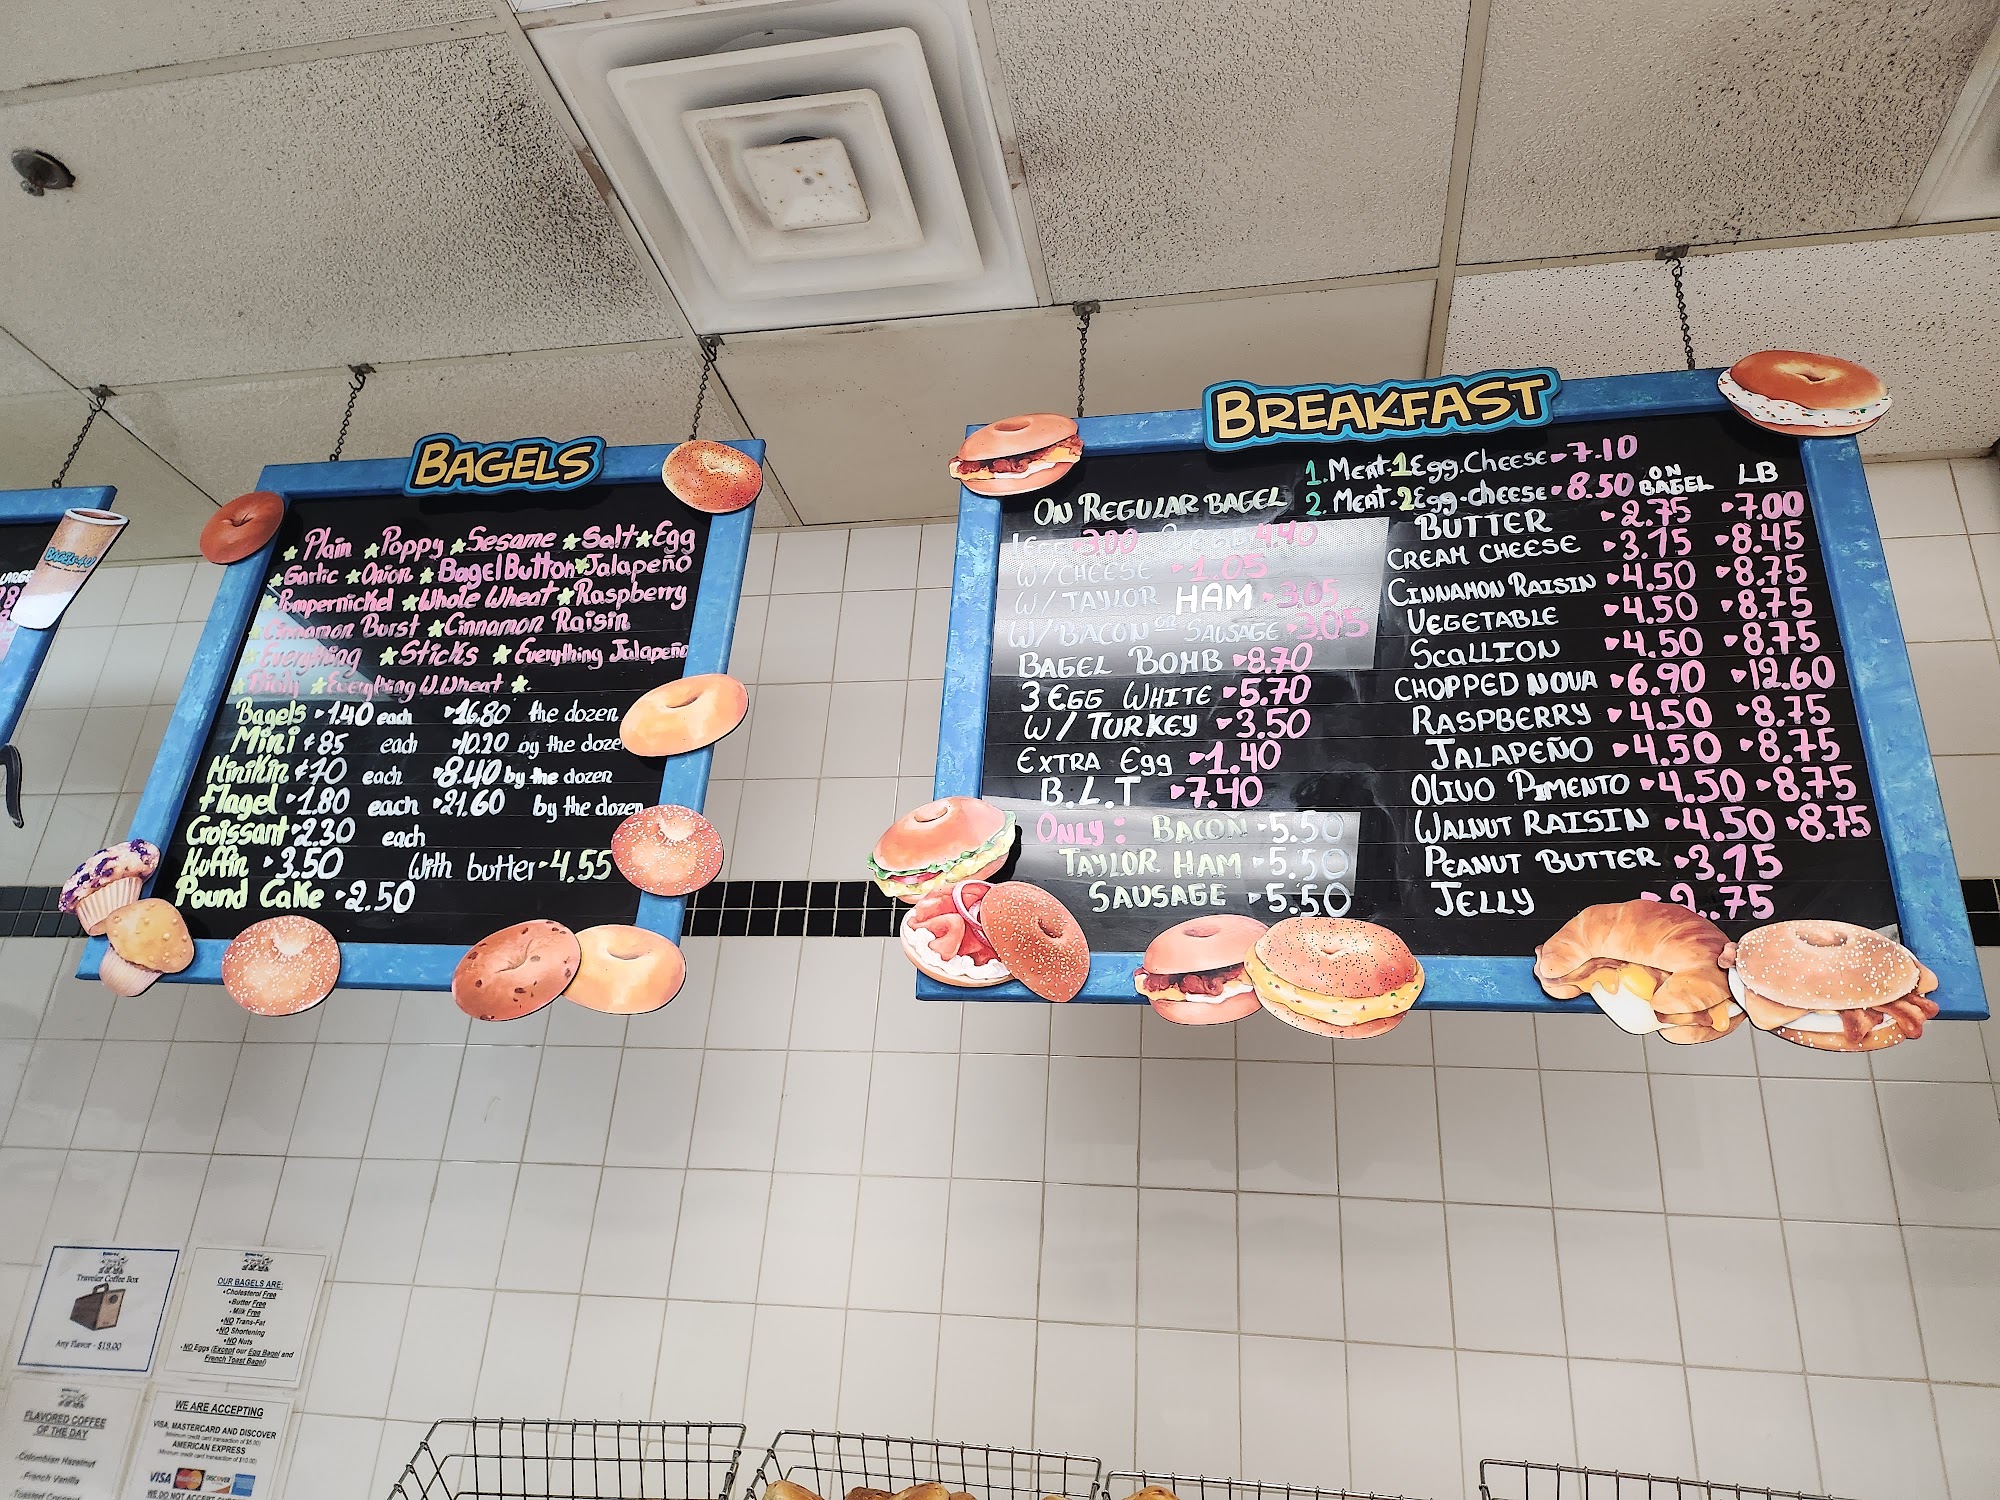 BAGELS
Plain Poppy Sesame Salt Egg
Garlic Onion Bagel Button Jalapeño
Pumpernickel Whole Wheat Raspberry
Cinnamon Burst Cinnamon Raisin
Everything Sticks Everything Jalapeño
Everything W.Wheat
Bagels 1.40 each 16.80 the dozen
Mini ¢85 each 10.20 by the dozen
Minikin ¢70 each 8.40 by the dozen
Flagel 1.80 each 21.60 by the dozen
Croissant 2.30 each
Muffin 3.50 With butter 4.55
Pound Cake 2.50
BREAKFAST
1. Meat. 1 Egg. Cheese 7.10
ON REGULAR BAGEL 2. Meat. 2 Egg. cheese 8.50
1 Egg 3.00 4.40
W/ CHEESE 1.05
W/ TAYLOR HAM 3.05
W/ BACON OR SAUSAGE 3.05
BAGEL BOMB 8.70
3 EGG WHITE 5.70
W/ TURKEY 3.50
EXTRA Egg 1.40
B.L.T 7.40
ONLY: BACON 5.50
TAYLOR HAM 5.50
SAUSAGE 5.50
ON BAGEL LB
BUTTER 2.75 7.00
CREAM CHEESE 3.75 8.45
CINNAMON RAISIN 4.50 8.75
VEGETABLE 4.50 8.75
SCALLION 4.50 8.75
CHOPPED NOVA 6.90 12.60
RASPBERRY 4.50 8.75
JALAPEÑO 4.50 8.75
OLIVO PIMENTO 4.50 8.75
WALNUT RAISIN 4.50 8.75
PEANUT BUTTER 3.75
JELLY 2.75
Traveler Coffee Box
Any Flavor - $19.00
OUR BAGELS ARE:
•Cholesterol Free
•Butter Free
•Milk Free
•NO Trans-Fat
•NO Shortening
•NO Nuts
•NO Eggs (Except our Egg Bagel and
French Toast Bagel)
FLAVORED COFFEE
OF THE DAY
Colombian Hazelnut
French Vanilla
WE ARE ACCEPTING
VISA, MASTERCARD AND DISCOVER
(Minimum credit card transaction of $5.00)
AMERICAN EXPRESS
(Minimum credit card transaction of $10.00)
VISA DISCOVER
WE DO NOT ACCEPT